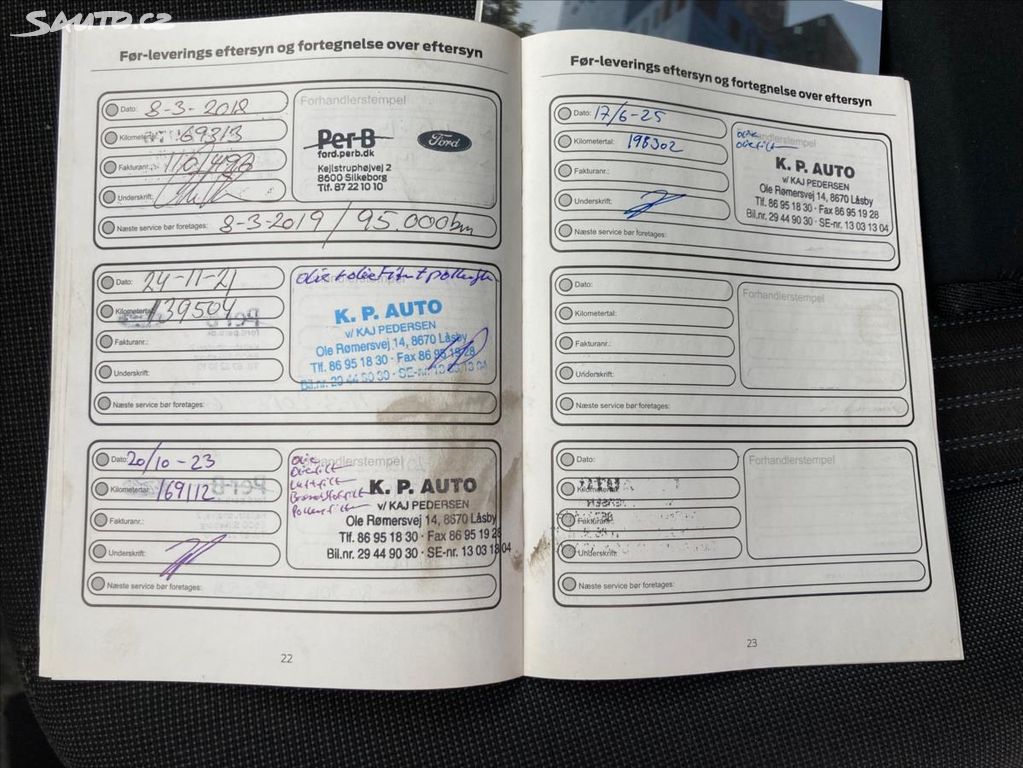 SAUTO.CZ
Før-leverings eftersyn og fortegnelse over eftersyn
Dato: 8-3-2018
Kilometertal: 69313
Fakturanr.:
Underskrift:
Forhandlerstempel
Per-B
ford.perb.dk
Kejlstruphøjvej 2
8600 Silkeborg
Tlf. 87 22 10 10
Ford
Næste service bør foretages: 8-3-2019 / 95.000km
Dato: 24-11-21
Kilometertal: 139504
Fakturanr.:
Underskrift:
olie + oliefilter + pollenfilter
K. P. AUTO
v/ KAJ PEDERSEN
Ole Rømersvej 14, 8670 Låsby
Tlf. 86 95 18 30 · Fax 86 95 19 28
Bil.nr. 29 44 90 30 · SE-nr. 13 03 13 04
Næste service bør foretages:
Dato: 20/10-23
Kilometertal: 169112
Fakturanr.:
Underskrift:
Forhandlerstempel
Olie
Oliefilt
Luftfilt
Brændstoffilt
Pollenfilt
K. P. AUTO
v/ KAJ PEDERSEN
Ole Rømersvej 14, 8670 Låsby
Tlf. 86 95 18 30 · Fax 86 95 19 28
Bil.nr. 29 44 90 30 · SE-nr. 13 03 13 04
Næste service bør foretages:
22
Før-leverings eftersyn og fortegnelse over eftersyn
Dato: 17/6-25
Kilometertal: 198302
Fakturanr.:
Underskrift:
Forhandlerstempel
olie
oliefilt
K. P. AUTO
v/ KAJ PEDERSEN
Ole Rømersvej 14, 8670 Låsby
Tlf. 86 95 18 30 · Fax 86 95 19 28
Bil.nr. 29 44 90 30 · SE-nr. 13 03 13 04
Næste service bør foretages:
Dato:
Kilometertal:
Fakturanr.:
Underskrift:
Forhandlerstempel
Næste service bør foretages:
Dato:
Kilometertal:
Fakturanr.:
Underskrift:
Forhandlerstempel
Næste service bør foretages:
23